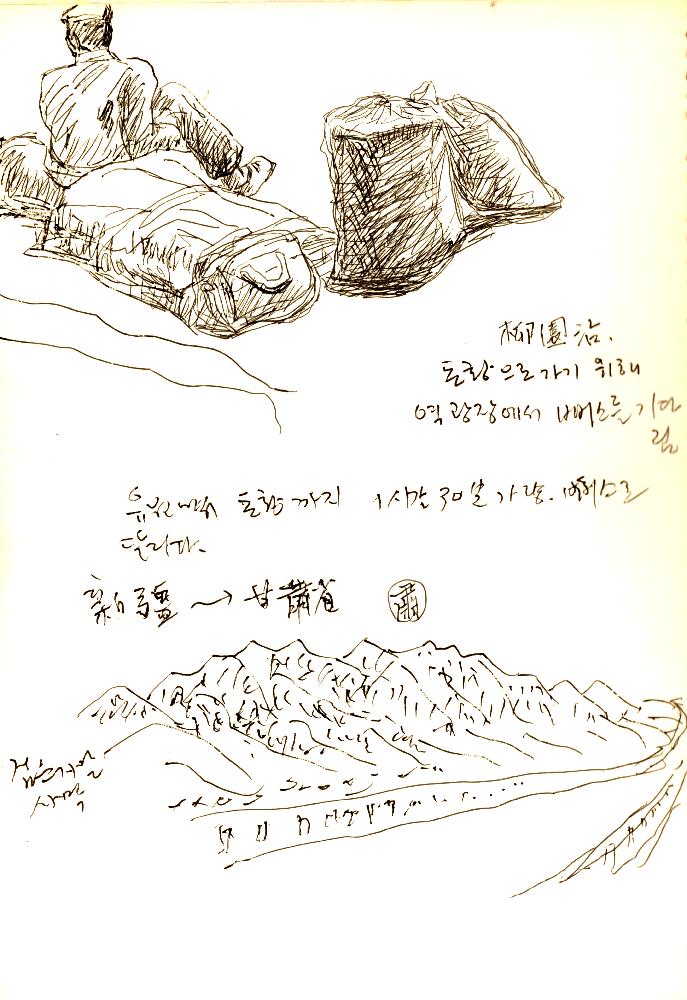 柳園站.
돈황으로 가기 위해
역 광장에서 버스를 기다
림
유원에서 돈황까지 1시간 30분 가량. 버스로
달리다.
新疆 → 甘肅省 肅
사막